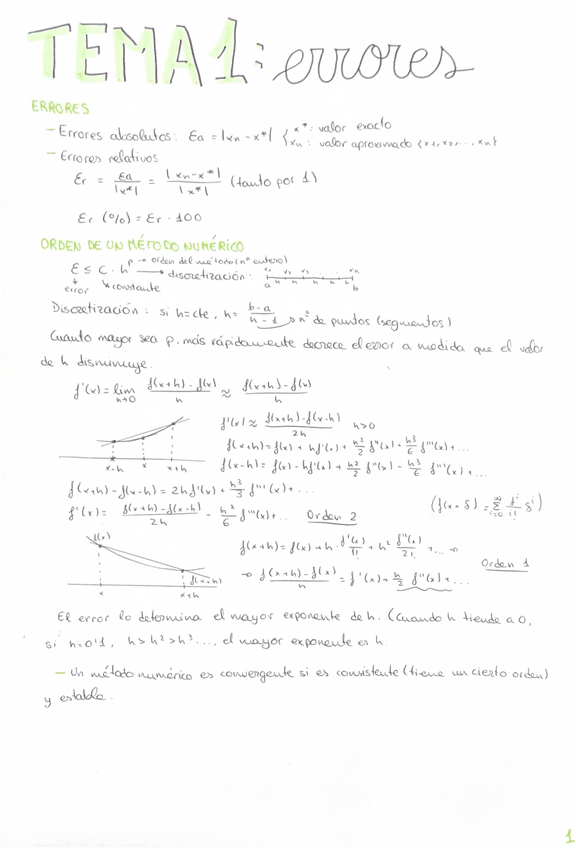 TEMA 1: errores
ERRORES
- Errores absolutos: Ea = |xn - x*| { x*: valor exacto
xn: valor aproximado {x1, x2, ..., xn}
- Errores relativos
Er = Ea / |x*| = |xn - x*| / |x*| (tanto por 1)
Er (%) = Er · 100
ORDEN DE UN MÉTODO NUMÉRICO
E ≤ C · h^p → orden del método (nº entero)
→ discretización: x1 x2 ... xn
a h h h h b
error constante
Discretización: si h = cte, h = (b-a)/(n-1) → nº de puntos (segmentos)
Cuanto mayor sea p, más rápidamente decrece el error a medida que el valor
de h disminuye.
f'(x) = lim h→0 (f(x+h) - f(x))/h ≈ (f(x+h) - f(x))/h
f'(x) ≈ (f(x+h) - f(x-h))/2h h>0
f(x+h) = f(x) + hf'(x) + h²/2 f''(x) + h³/6 f'''(x) + ...
f(x-h) = f(x) - hf'(x) + h²/2 f''(x) - h³/6 f'''(x) + ...
x-h x x+h
f(x+h) - f(x-h) = 2hf'(x) + h³/3 f'''(x) + ...
f'(x) = (f(x+h) - f(x-h))/2h - h²/6 f'''(x) + .. Orden 2
(f(x+δ) = Σ i=0 ∞ f^i/i! δ^i)
f(x) f(x+h)
x x+h
f(x+h) = f(x) + h · f'(x)/1! + h² f''(x)/2! + ... →
→ (f(x+h) - f(x))/h = f'(x) + h/2 f''(x) + ... Orden 1
El error lo determina el mayor exponente de h. (Cuando h tiende a 0,
si h=0'1, h > h² > h³ ...., el mayor exponente es h.
- Un método numérico es convergente si es consistente (tiene un cierto orden)
y estable.
1